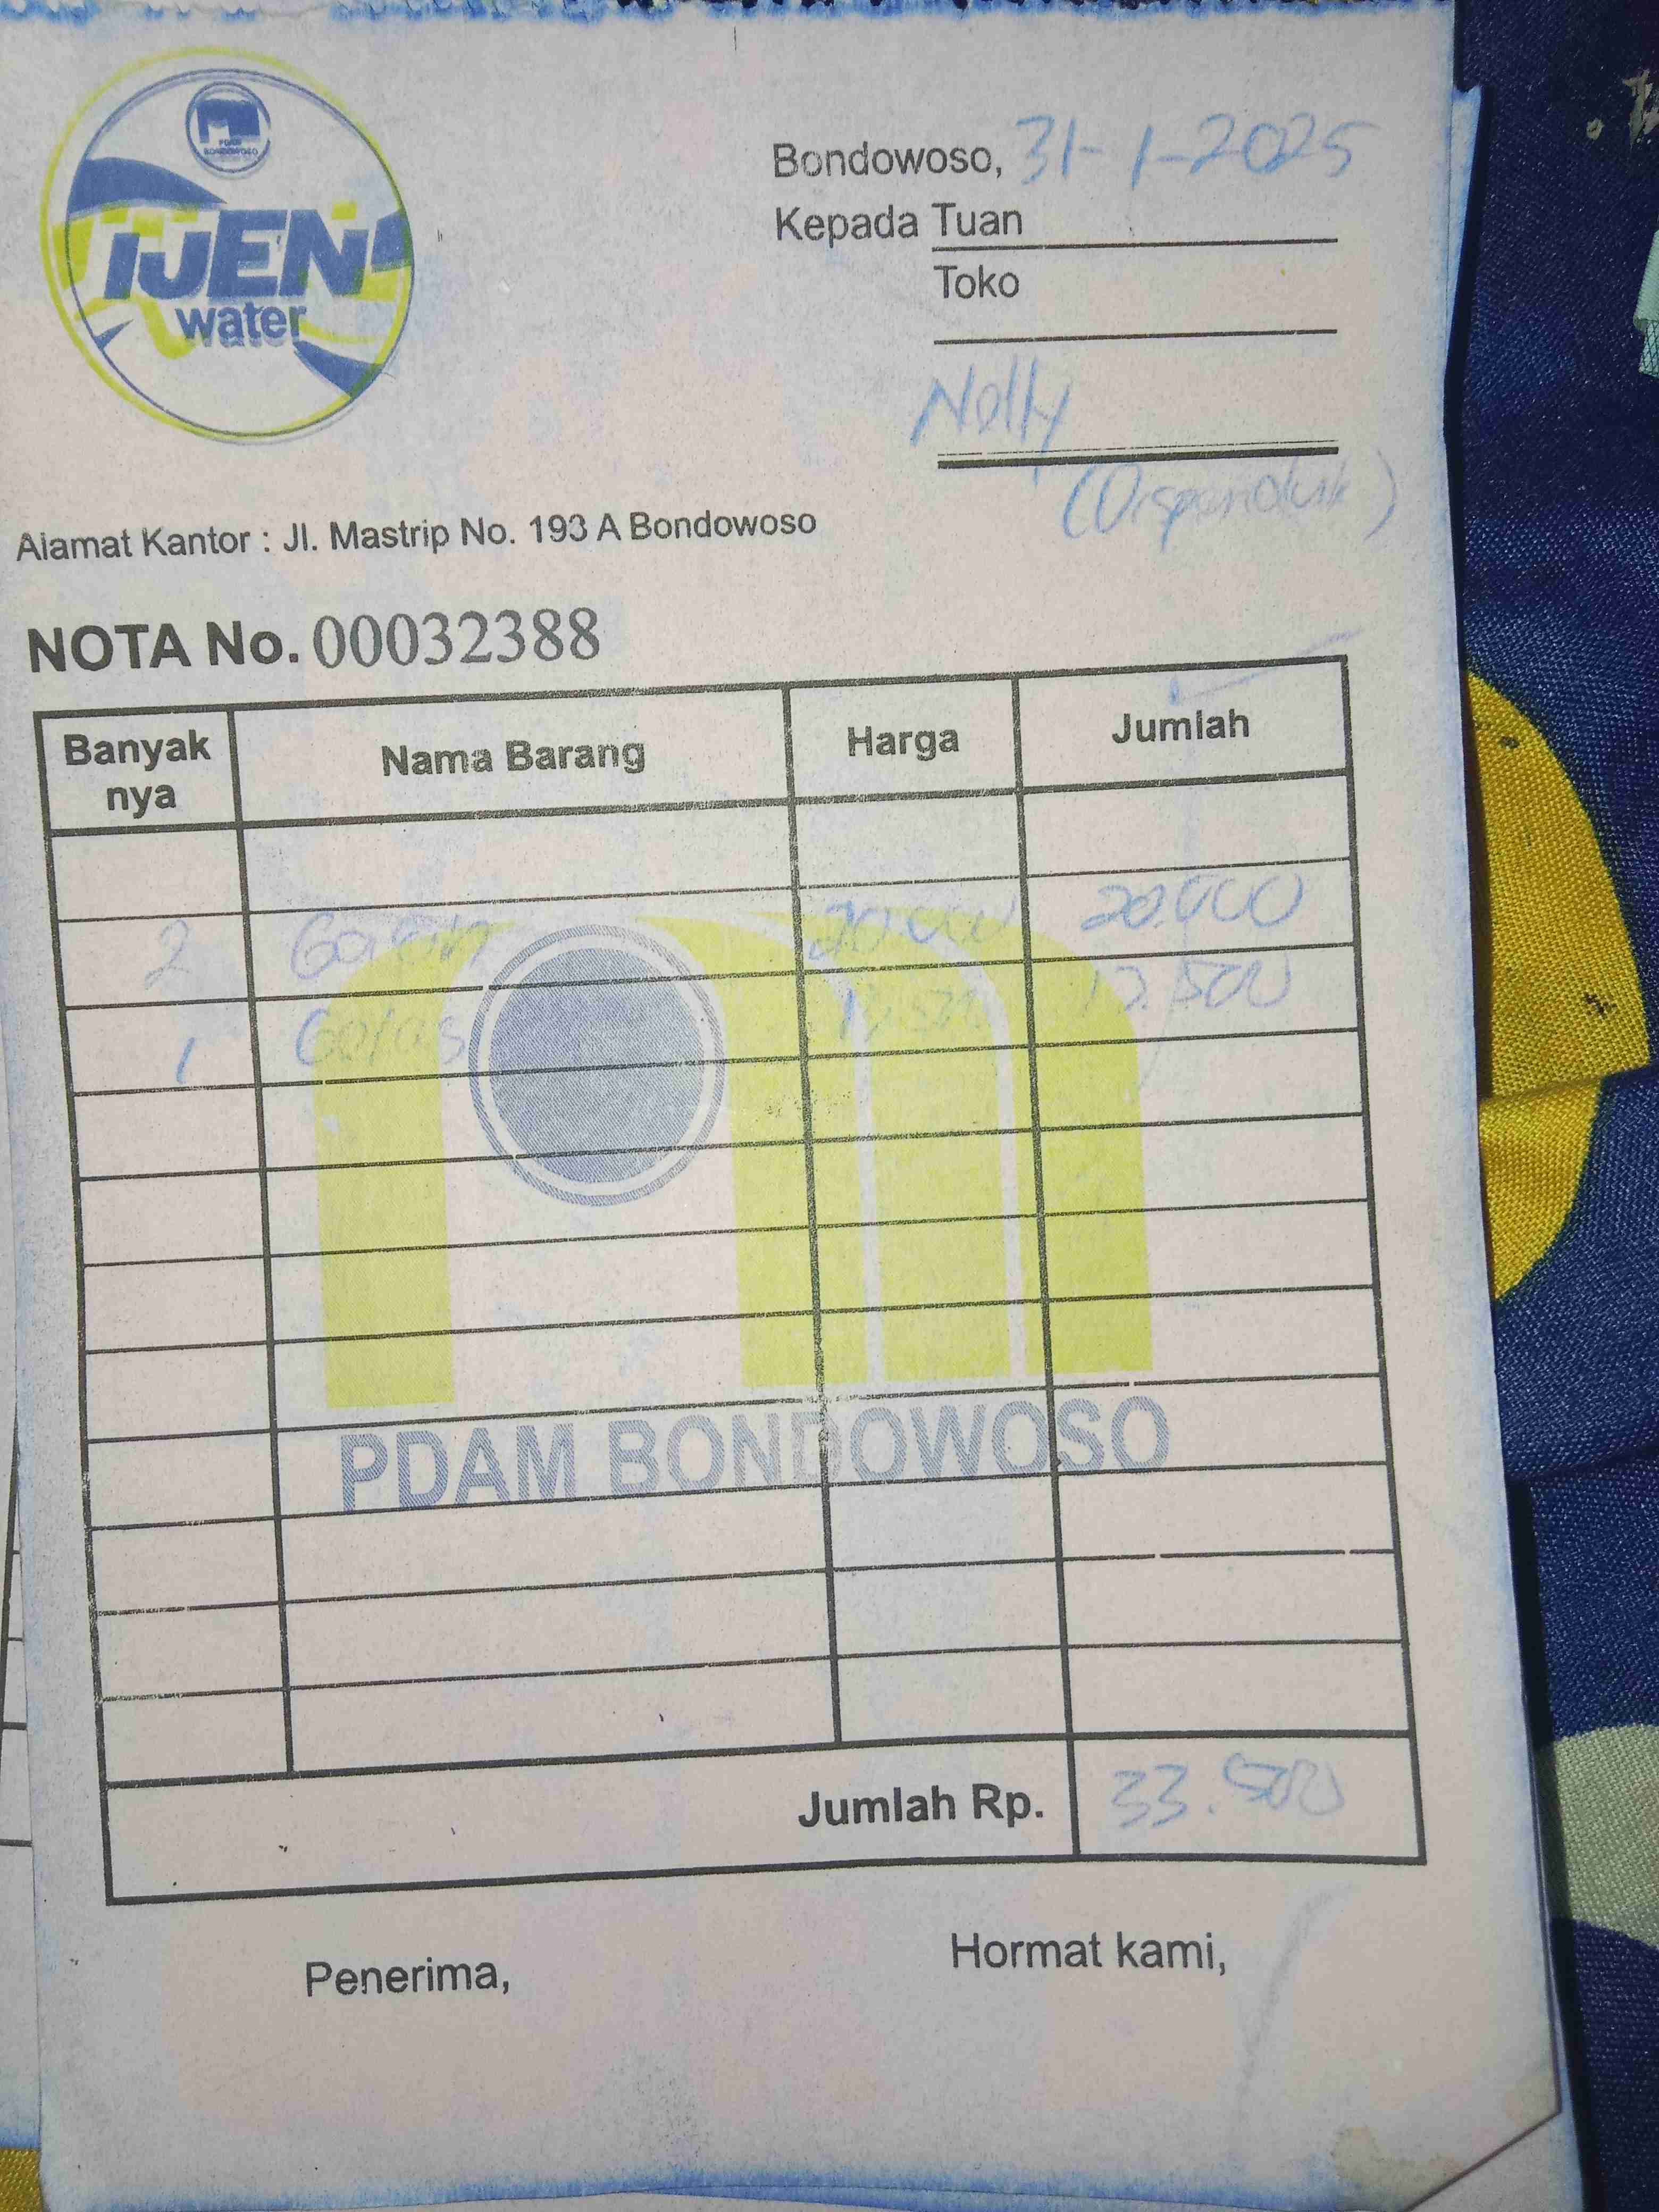 PDAM
BONDOWOSO
IJEN
water
Bondowoso, 31-1-2025
Kepada Tuan
Toko
Nelly
(Dispenduk)
Alamat Kantor : Jl. Mastrip No. 193 A Bondowoso
NOTA No. 00032388
Banyak nya Nama Barang Harga Jumlah
2 Galon 20.000 20.000
1 Gelas 13.500
PDAM BONDOWOSO
Jumlah Rp. 33.500
Penerima, Hormat kami,